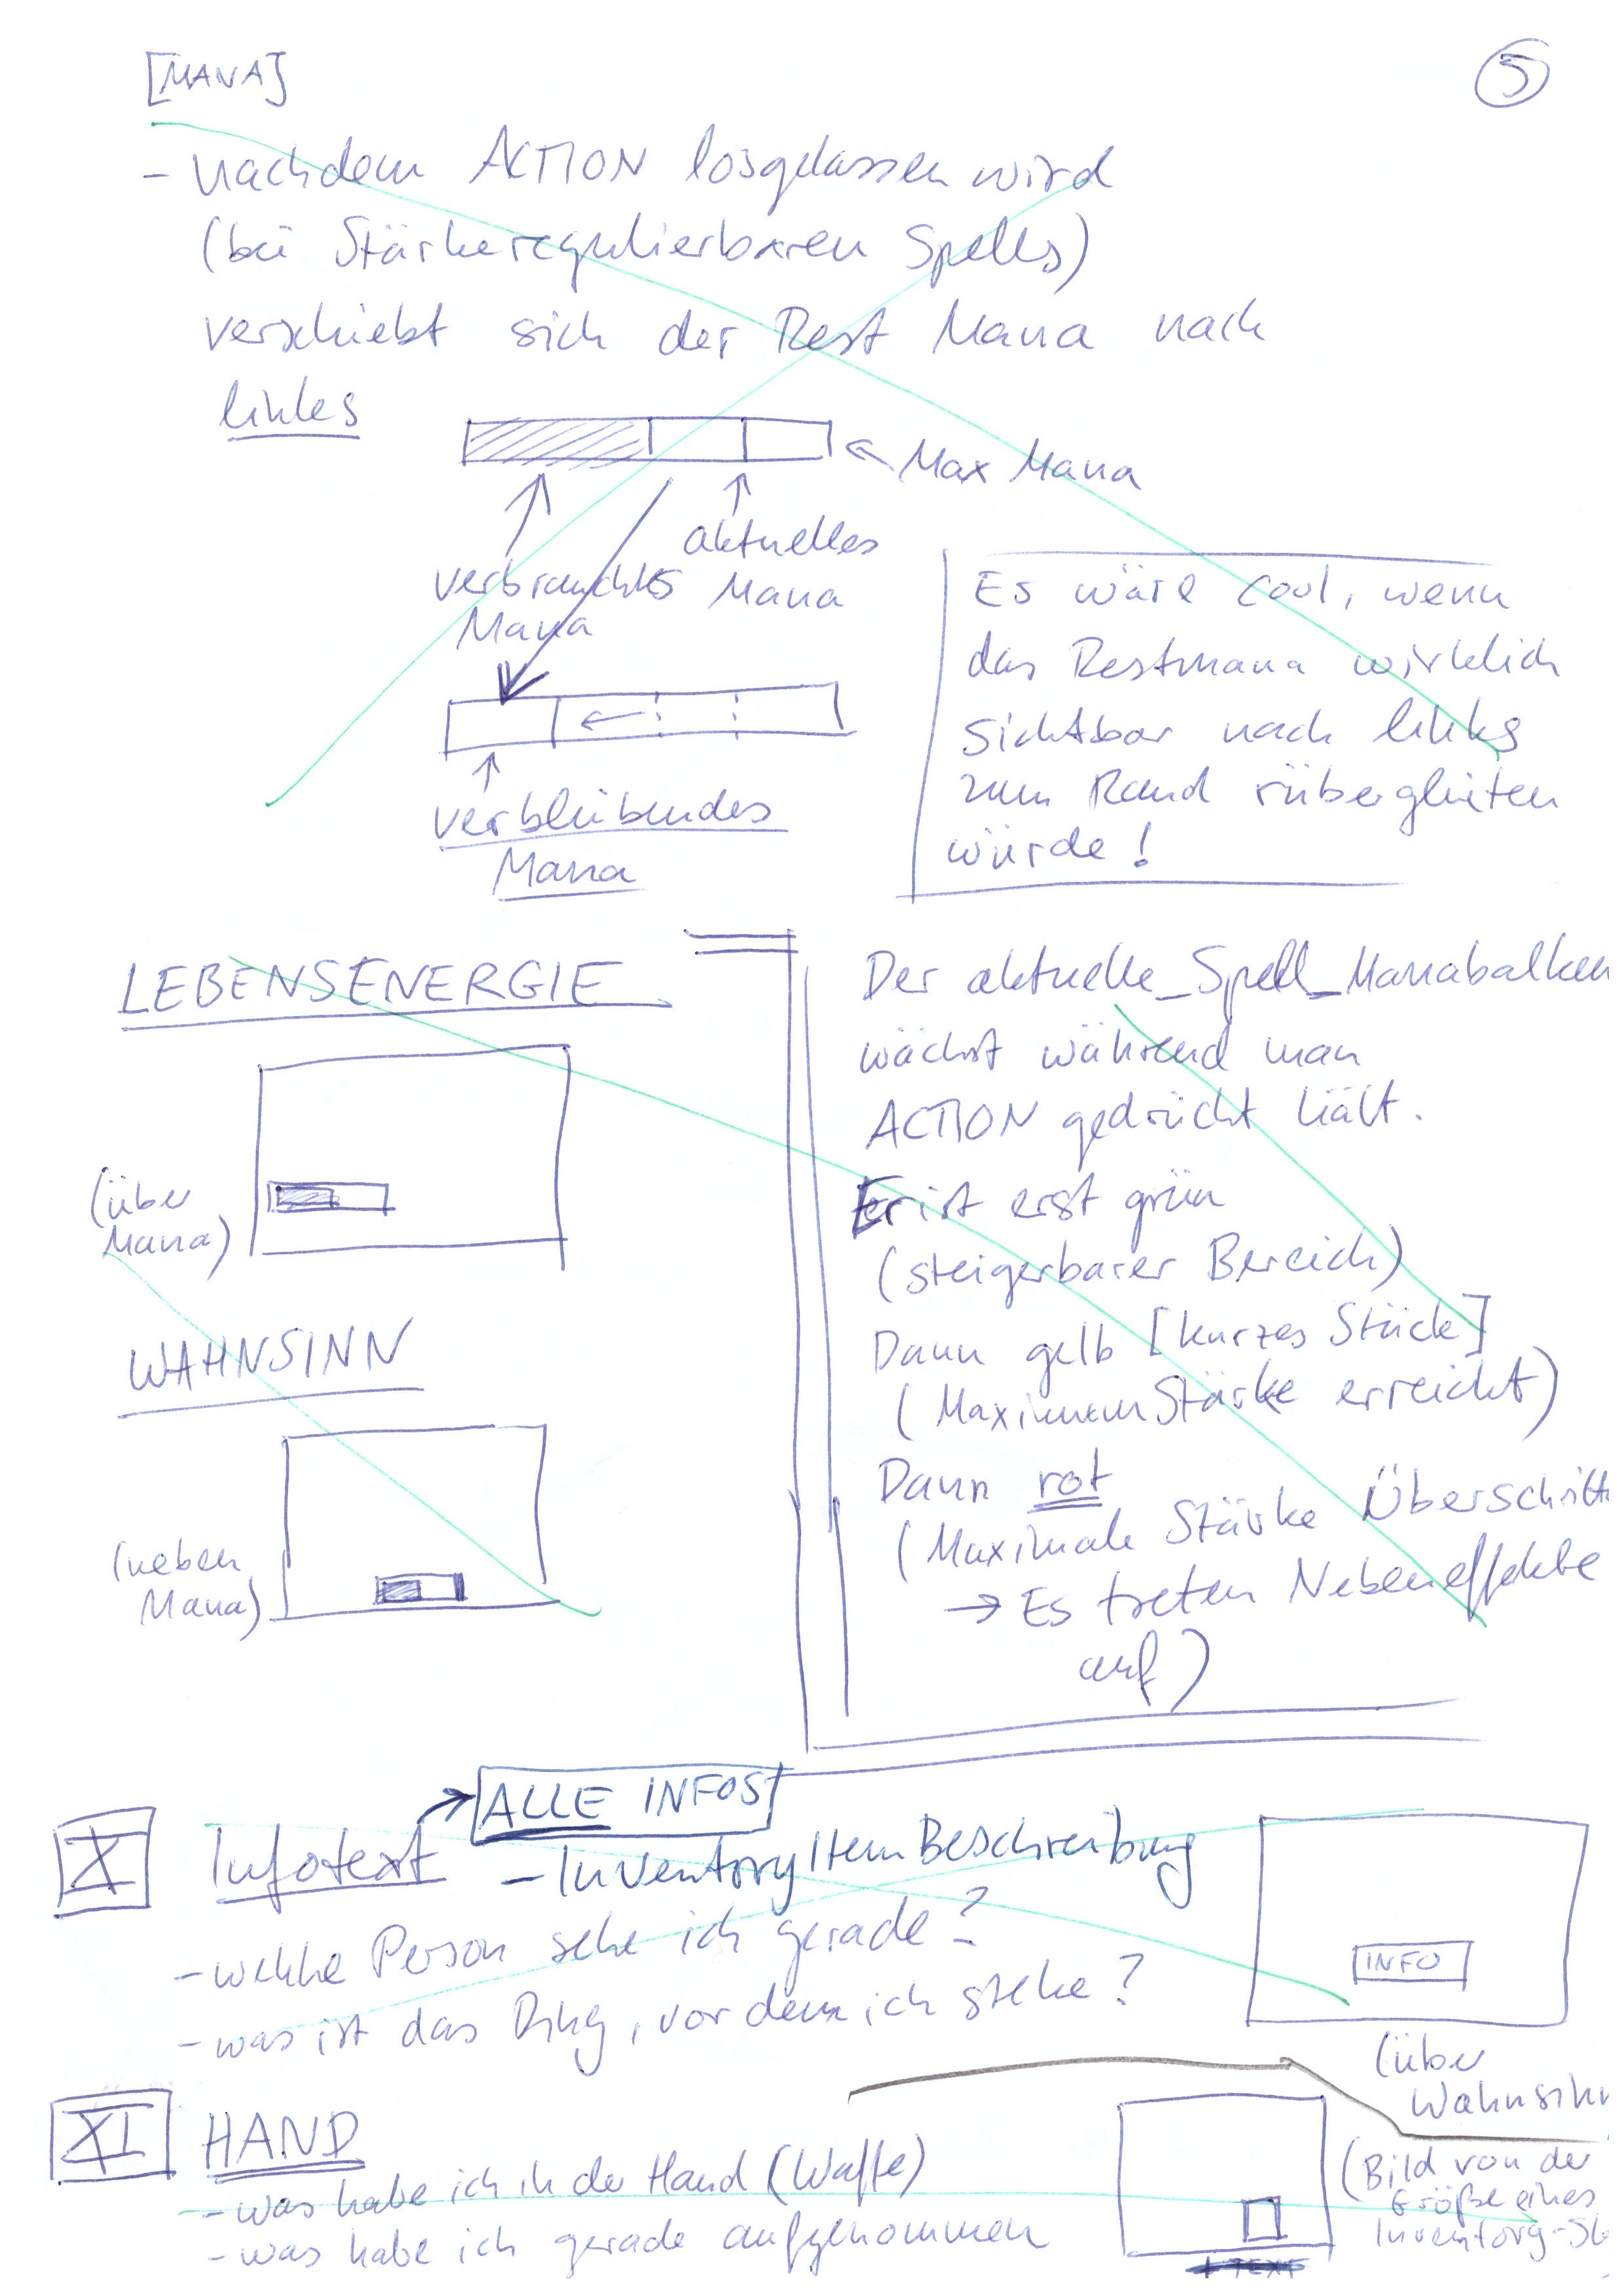 [MANA]
5
- nachdem ACTION losgelassen wird
(bei Stärkeregulierbaren Spells)
verschiebt sich der Rest Mana nach
links
← Max Mana
aktuelles
Mana
verbrauchtes
Mana
verbleibendes
Mana
Es wäre cool, wenn
das Restmana wirklich
sichtbar nach links
zum Rand rübergleiten
würde!
LEBENSENERGIE
(über
Mana)
WAHNSINN
(neben
Mana)
Der aktuelle_Spell_Manabalken
wächst während man
ACTION gedrückt hält.
Er ist erst grün
(steigerbarer Bereich)
Dann gelb [kurzes Stück]
(Maximum Stärke erreicht)
Dann rot
(Maximale Stärke Überschritt
→ Es treten Nebeneffekte
auf)
X Infotext → ALLE INFOS
- Inventory Item Beschreibung
- welche Person sehe ich gerade?
- was ist das Ding, vor dem ich stehe?
INFO
(über
Wahnsinn
XI HAND
- was habe ich in der Hand (Waffe)
- was habe ich gerade aufgenommen
(Bild von der
Größe eines
Inventory-Sl
+ TEXT